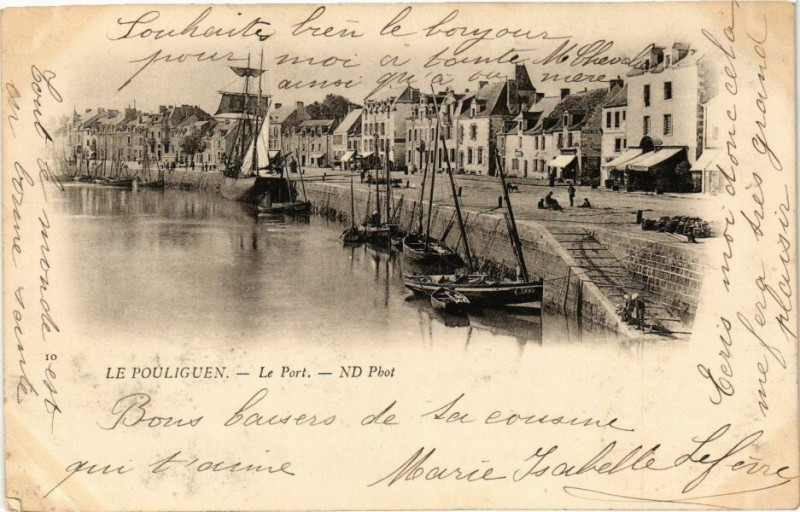 Souhaite bien le bonjour
pour moi à tante Mme Chevalier
ainsi qu'à ou mère
Tout le monde est
en bonne santé
10
LE POULIGUEN. — Le Port. — ND Phot
Bons baisers de ta cousine
qui t'aime
Marie Isabelle Lefèvre
Ecris moi donc cela
me fera très grand
plaisir